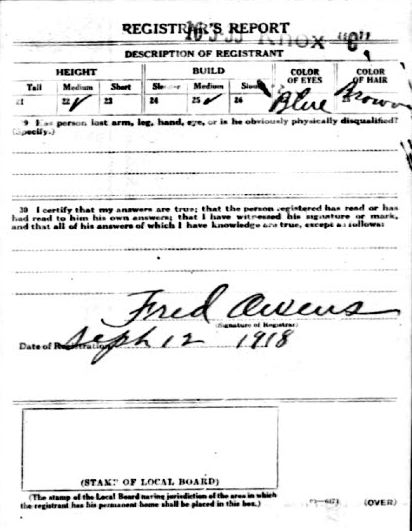 REGISTRAR'S REPORT
Knox "C"
DESCRIPTION OF REGISTRANT
HEIGHT BUILD COLOR OF EYES COLOR OF HAIR
Tall Medium Short Slender Medium Stout
21 22 ✓ 23 24 25 ✓ 26 Blue Brown
29 Has person lost arm, leg, hand, eye, or is he obviously physically disqualified?
(Specify.)
30 I certify that my answers are true; that the person registered has read or has
had read to him his own answers; that I have witnessed his signature or mark,
and that all of his answers of which I have knowledge are true, except as follows:
Fred Owens
(Signature of Registrar)
Date of Registration Sept 12 1918
(STAMP OF LOCAL BOARD)
(The stamp of the Local Board having jurisdiction of the area in which
the registrant has his permanent home shall be placed in this box.)
(OVER)